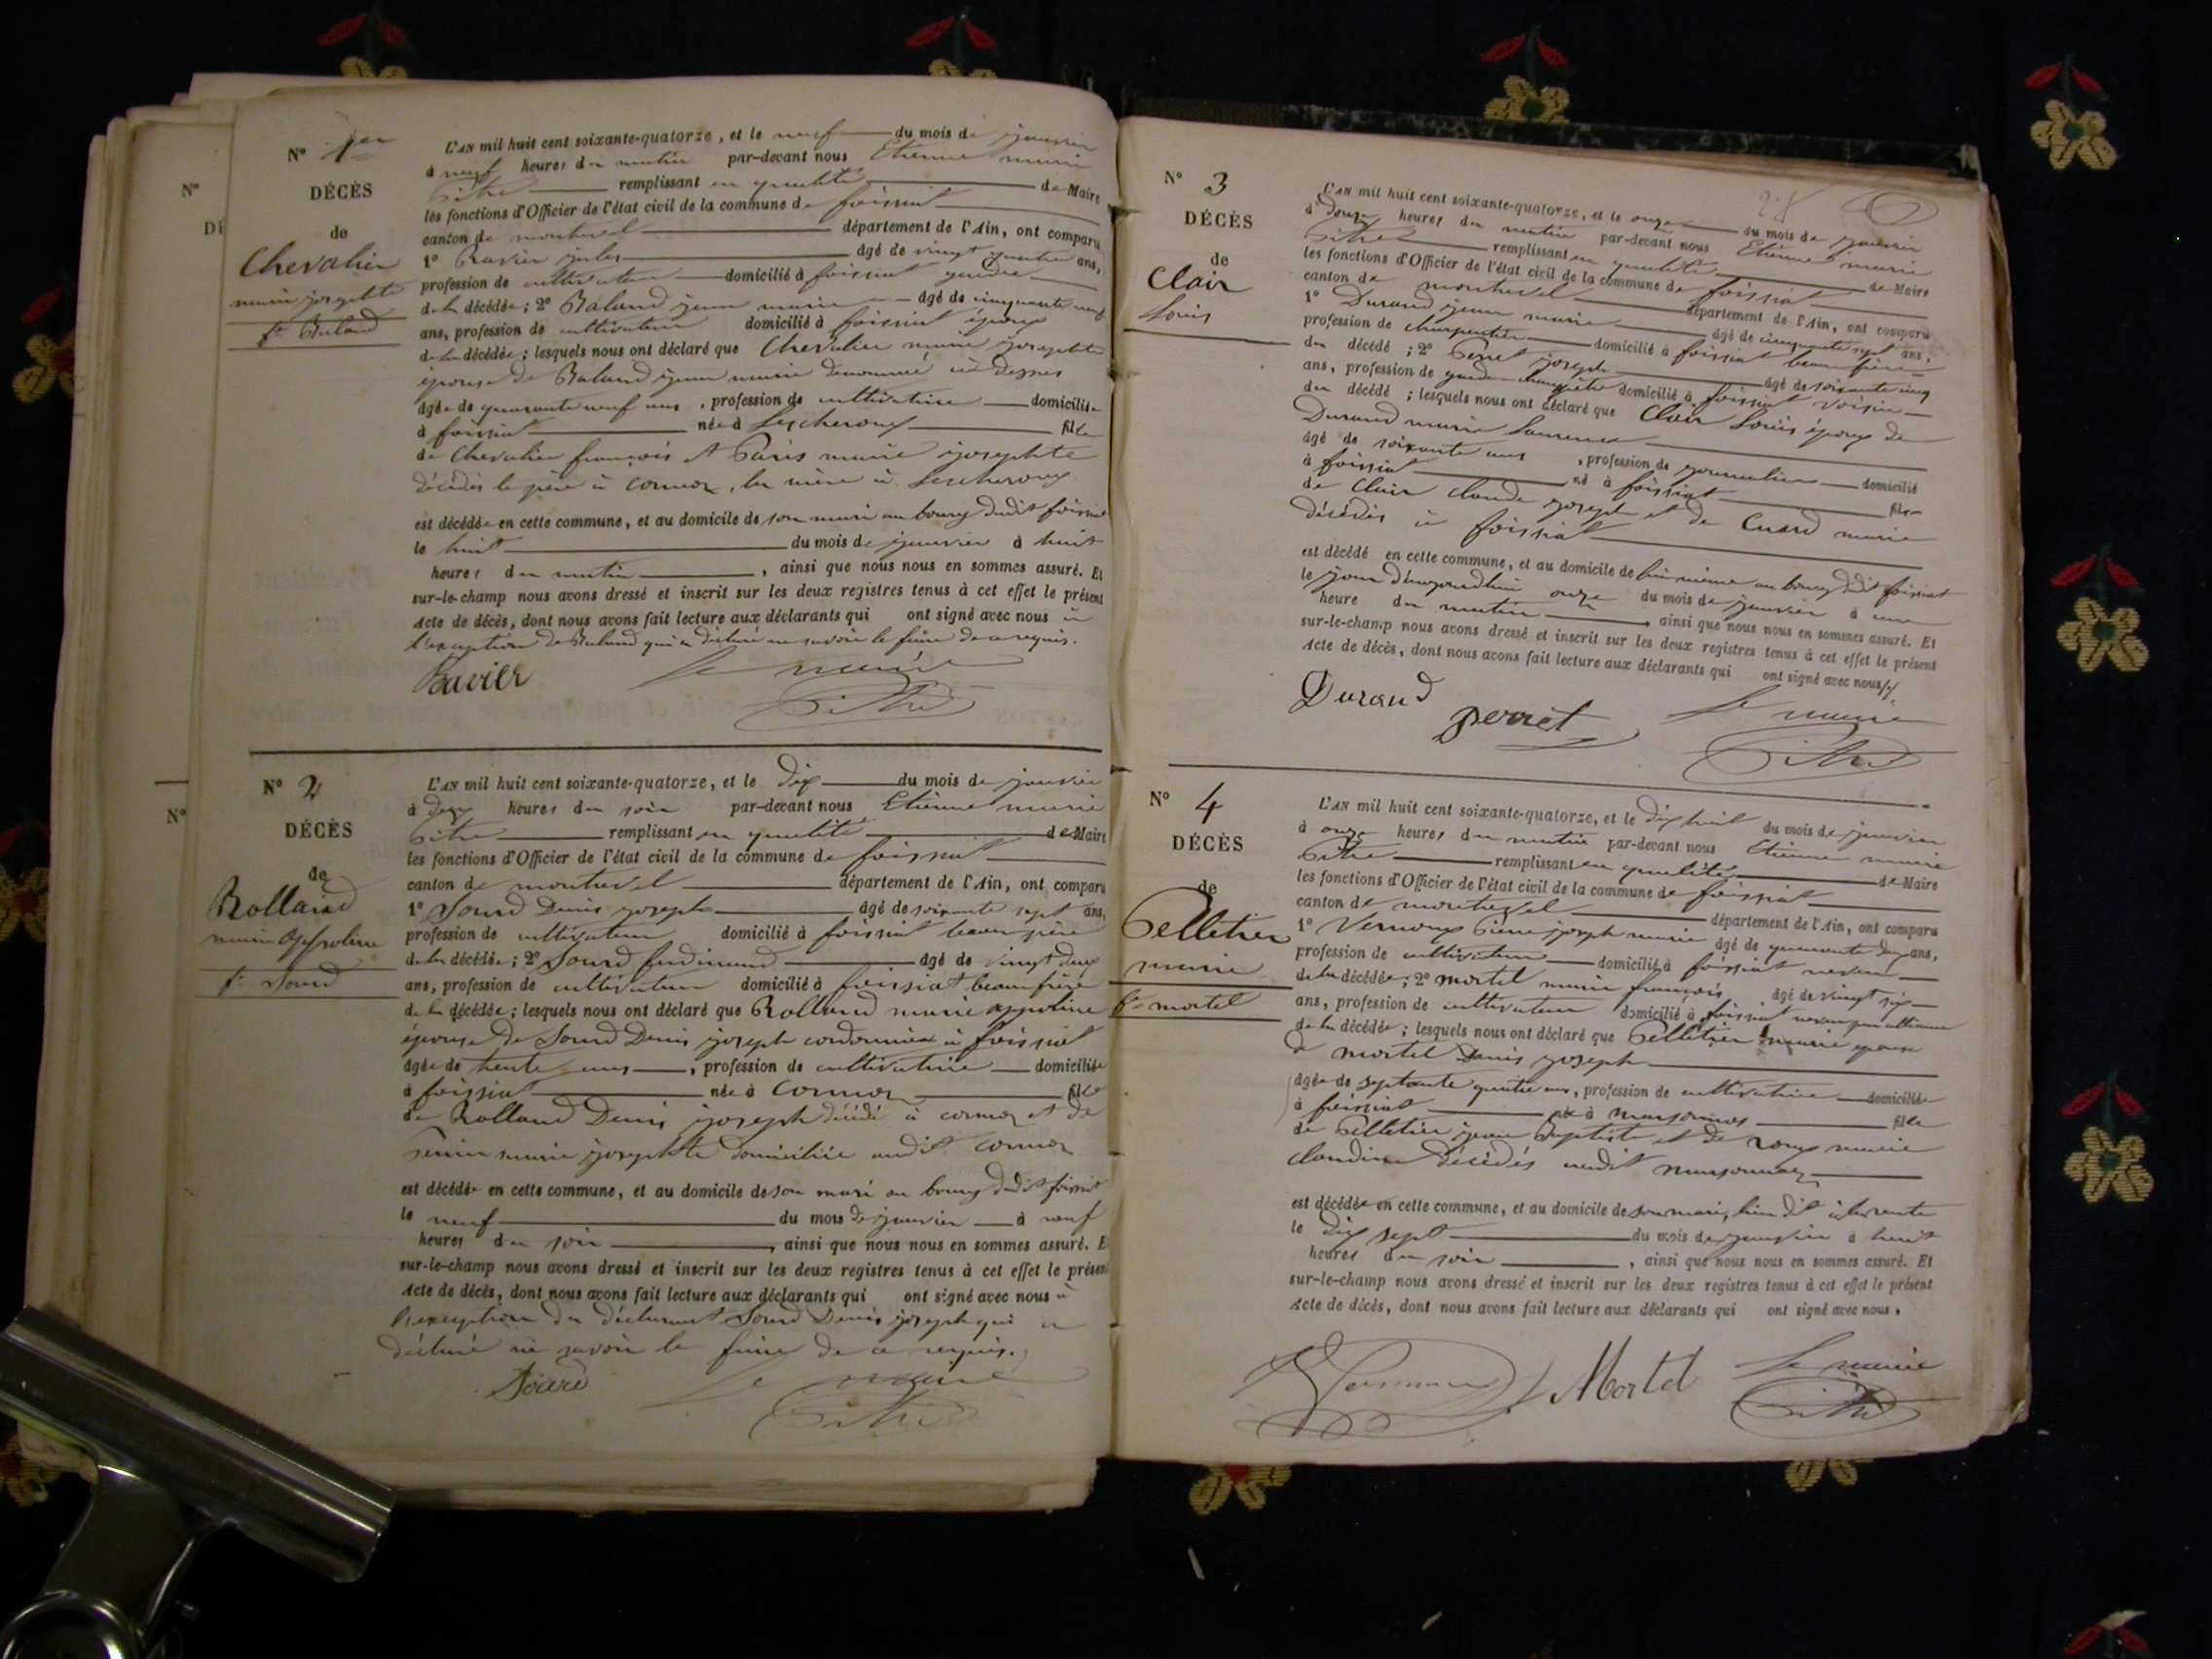 N° 1er
DÉCÈS
de
Chevalier
marie josephte
fe Buland
L'AN mil huit cent soixante-quatorze, et le neuf du mois de janvier
à neuf heures du matin par-devant nous Etienne marie
Pitre remplissant en qualité de Maire
les fonctions d'Officier de l'état civil de la commune de foissiat
canton de montrevel département de l'Ain, ont comparu
1° Ravier jules âgé de vingt quatre ans,
profession de cultivateur domicilié à foissiat gendre
de la décédée; 2° Buland jean marie âgé de cinquante neuf
ans, profession de cultivateur domicilié à foissiat époux
de la décédée; lesquels nous ont déclaré que Chevalier marie josephte
épouse de Buland jean marie denommé ci dessus
âgée de quarante neuf ans, profession de cultivatrice domiciliée
à foissiat née à Lescheroux fille
de Chevalier françois et Paris marie josephte
décédés le père à Cormoz, la mère à Lescheroux
est décédée en cette commune, et au domicile de son mari au bourg dudit foissiat
le huit du mois de janvier à huit
heures du matin, ainsi que nous nous en sommes assuré. Et
sur-le-champ nous avons dressé et inscrit sur les deux registres tenus à cet effet le présent
Acte de décès, dont nous avons fait lecture aux déclarants qui ont signé avec nous à
l'exception de Buland qui a déclaré ne savoir le faire de ce requis.
Ravier Le maire
Pitre
N° 2
DÉCÈS
de
Rolland
marie appoline
fe Sourd
L'AN mil huit cent soixante-quatorze, et le dix du mois de janvier
à deux heures du soir par-devant nous Etienne marie
Pitre remplissant en qualité de Maire
les fonctions d'Officier de l'état civil de la commune de foissiat
canton de montrevel département de l'Ain, ont comparu
1° Sourd Denis joseph âgé de soixante sept ans,
profession de cultivateur domicilié à foissiat beau père
de la décédée; 2° Sourd ferdinand âgé de vingt deux
ans, profession de cultivateur domicilié à foissiat beau frère
de la décédée; lesquels nous ont déclaré que Rolland marie appoline
épouse de Sourd Denis joseph cordonnier à foissiat
âgée de trente ans, profession de cultivatrice domiciliée
à foissiat née à Cormoz fille
de Rolland Denis joseph décédé à cormoz et de
marie josephte domiciliée audit Cormoz
est décédée en cette commune, et au domicile de son mari au bourg dudit foissiat
le neuf du mois de janvier à neuf
heures du soir, ainsi que nous nous en sommes assuré. E
sur-le-champ nous avons dressé et inscrit sur les deux registres tenus à cet effet le présent
Acte de décès, dont nous avons fait lecture aux déclarants qui ont signé avec nous à
l'exception du déclarant Sourd Denis joseph qui a
déclaré ne savoir le faire de ce requis.
Sourd Le maire
Pitre
N° 3
DÉCÈS
de
Clair
Louis
L'AN mil huit cent soixante-quatorze, et le onze du mois de janvier
à heures du matin par-devant nous Etienne marie
Pitre remplissant en qualité de Maire
les fonctions d'Officier de l'état civil de la commune de foissiat
canton de montrevel département de l'Ain, ont comparu
1° Durand jean marie âgé de cinquante sept ans,
profession de charpentier domicilié à foissiat beau frère
du décédé; 2° Perret joseph âgé de soixante cinq
ans, profession de garde champêtre domicilié à foissiat voisin
du décédé; lesquels nous ont déclaré que Clair Louis époux de
Durand marie Laurence
âgé de soixante ans, profession de journalier domicilié
à foissiat né à foissiat fils
de Clair claude joseph et de Cuard marie
décédés à foissiat
est décédé en cette commune, et au domicile de lui même au bourg dudit foissiat
le jour d'aujourdhui onze du mois de janvier à une
heure du matin, ainsi que nous nous en sommes assuré. Et
sur-le-champ nous avons dressé et inscrit sur les deux registres tenus à cet effet le présent
Acte de décès, dont nous avons fait lecture aux déclarants qui ont signé avec nous
Durand perret Le maire
Pitre
N° 4
DÉCÈS
de
Pelletier
marie
fe mortel
L'AN mil huit cent soixante-quatorze, et le dix huit du mois de janvier
à onze heures du matin par-devant nous Etienne marie
Pitre remplissant en qualité de Maire
les fonctions d'Officier de l'état civil de la commune de foissiat
canton de montrevel département de l'Ain, ont comparu
1° Vernoux Pierre joseph marie âgé de quarante deux ans,
profession de cultivateur domicilié à foissiat neveu
de la décédée; 2° mortel marie françois âgé de vingt six
ans, profession de cultivateur domicilié à foissiat neveu par alliance
de la décédée; lesquels nous ont déclaré que Pelletier marie épouse
de mortel Denis joseph
âgée de septante quatre ans, profession de cultivatrice domiciliée
à foissiat née à marsonnas fille
de Pelletier jean Baptiste et de roux marie
claudine décédés audit marsonnas
est décédée en cette commune, et au domicile de son mari, lieu dit
le dix sept du mois de janvier à huit
heures du soir, ainsi que nous nous en sommes assuré. Et
sur-le-champ nous avons dressé et inscrit sur les deux registres tenus à cet effet le présent
Acte de décès, dont nous avons fait lecture aux déclarants qui ont signé avec nous.
Mortel Le maire
Pitre